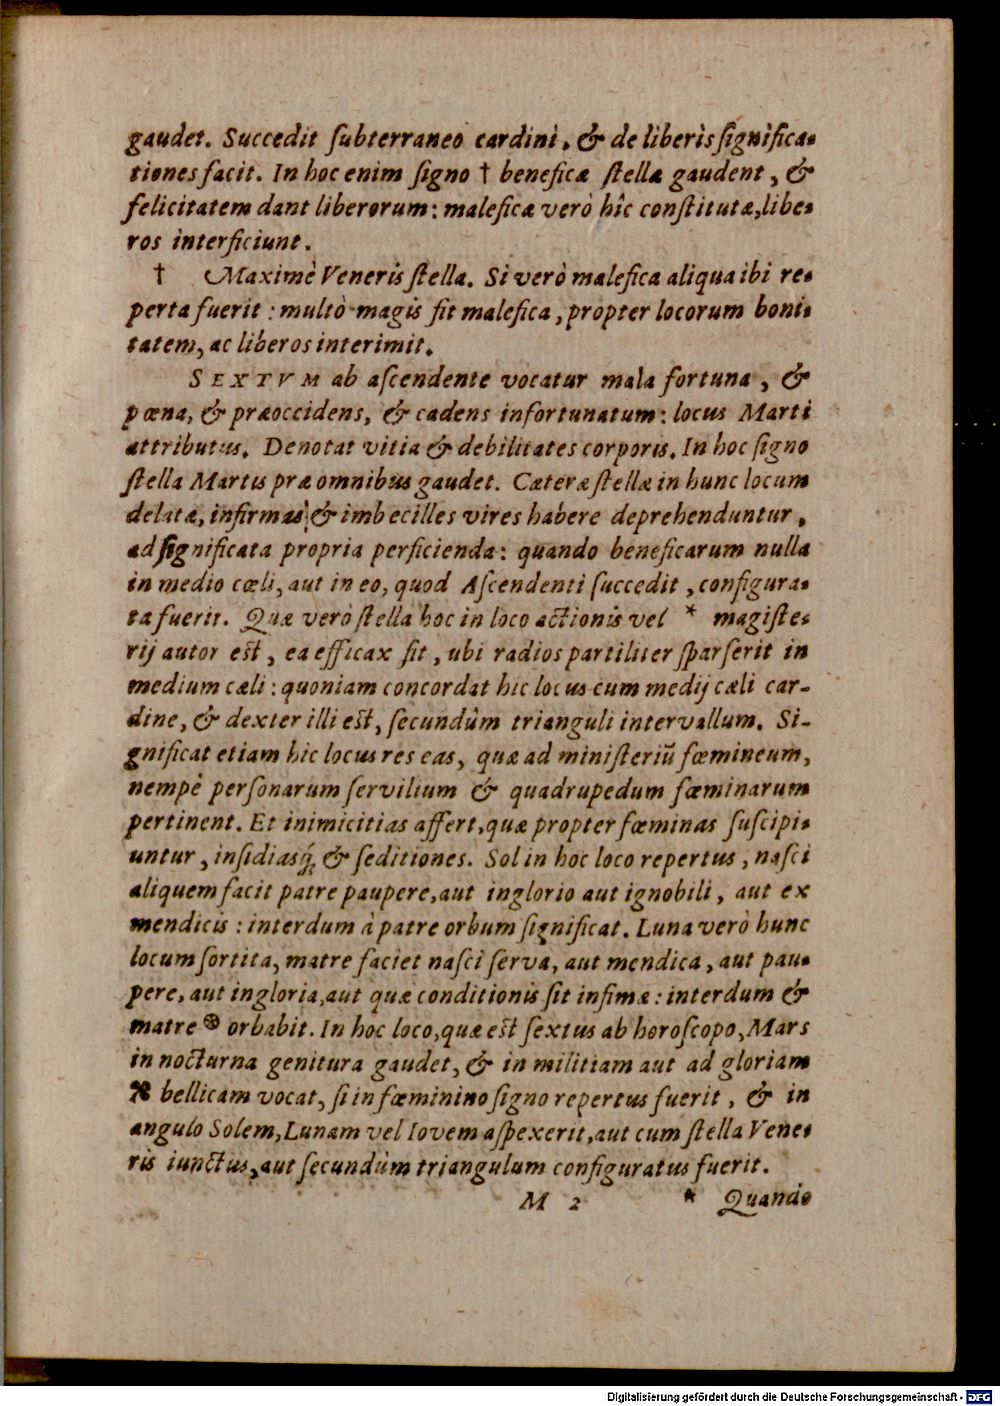 gaudet. Succedit ſubterraneo cardini, & de liberis ſignifica-
tiones facit. In hoc enim ſigno † beneficæ ſtellæ gaudent, &
felicitatem dant liberorum: maleficæ verò hîc conſtitutæ, libe-
ros interficiunt.
† Maximè Veneris ſtella. Si verò malefica aliqua ibi re-
perta fuerit: multò magis fit malefica, propter locorum boni-
tatem, ac liberos interimit.
SEXTVM ab aſcendente vocatur mala fortuna, &
pœna, & præoccidens, & cadens infortunatum: locus Marti
attributus. Denotat vitia & debilitates corporis. In hoc ſigno
ſtella Martis præ omnibus gaudet. Cæteræ ſtellæ in hunc locum
delatæ, infirmas & imbecilles vires habere deprehenduntur,
ad ſignificata propria perficienda: quando beneficarum nulla
in medio cœli, aut in eo, quod Aſcendenti ſuccedit, configura-
ta fuerit. Quæ verò ſtella hoc in loco actionis vel * magiſte-
rij autor eſt, ea efficax fit, ubi radios partiliter ſparſerit in
medium cæli: quoniam concordat hic locus cum medij cæli car-
dine, & dexter illi eſt, ſecundùm trianguli intervallum. Si-
gnificat etiam hic locus res eas, quæ ad miniſteriũ fœmineum,
nempè perſonarum ſervilium & quadrupedum fœminarum
pertinent. Et inimicitias affert, quæ propter fœminas ſuſcipi-
untur, inſidiasq́; & ſeditiones. Sol in hoc loco repertus, naſci
aliquem facit patre paupere, aut inglorio aut ignobili, aut ex
mendicis: interdum à patre orbum ſignificat. Luna verò hunc
locum ſortita, matre faciet naſci ſerva, aut mendica, aut pau-
pere, aut ingloria, aut quæ conditionis ſit infimæ: interdum &
matre ⊛ orbabit. In hoc loco, quæ eſt ſextus ab horoſcopo, Mars
in nocturna genitura gaudet, & in militiam aut ad gloriam
⌘ bellicam vocat, ſi in fœminino ſigno repertus fuerit, & in
angulo Solem, Lunam vel Iovem aſpexerit, aut cum ſtella Vene-
ris iunctus, aut ſecundùm triangulum configuratus fuerit.
M 2 * Quando
Digitalisierung gefördert durch die Deutsche Forschungsgemeinschaft - DFG